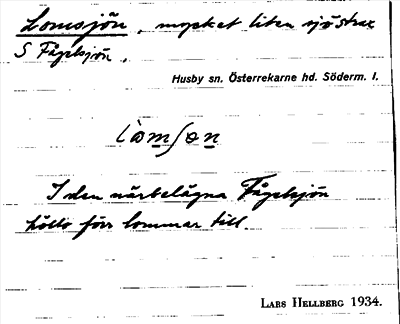 Lomsjön, mycket liten sjö strax
S Fågelsjön,
Husby sn. Österrekarne hd. Söderm. l.
lòmʃọn
I den närbelägna Fågelsjön
hölló förr lommar till.
LARS HELLBERG 1934.